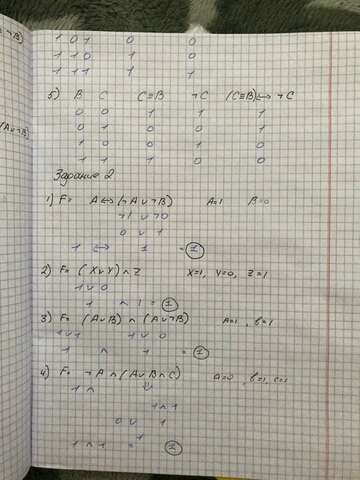 ∨¬B)
1 0 1 0 0
1 1 0 1 0
1 1 1 1 1
5) B C C≡B ¬C (C≡B)⟷¬C
(A∨¬B)
0 0 1 1 1
0 1 0 0 1
1 0 0 1 0
1 1 1 0 0
Задание 2
1) F= A⟷(¬A∨¬B) A=1 B=0
¬1 ∨ ¬0
0 ∨ 1
1 ⟷ 1 = 1
2) F= (X∨Y)∧Z X=1, Y=0, Z=1
1∨0
1 ∧ 1 = 1
3) F= (A∨B)∧(A∨¬B) A=1, B=1
1∨1 1∨0
1 ∧ 1 = 1
4) F= ¬A∧(A∨B∧C) A=0, B=1, C=1
1∧
1∧1
0∨ 1
1
1∧1 = 1